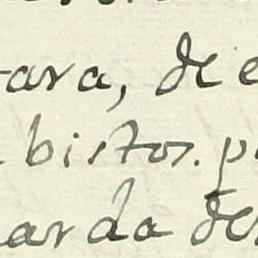 ara, de e
bistos. p
arda de